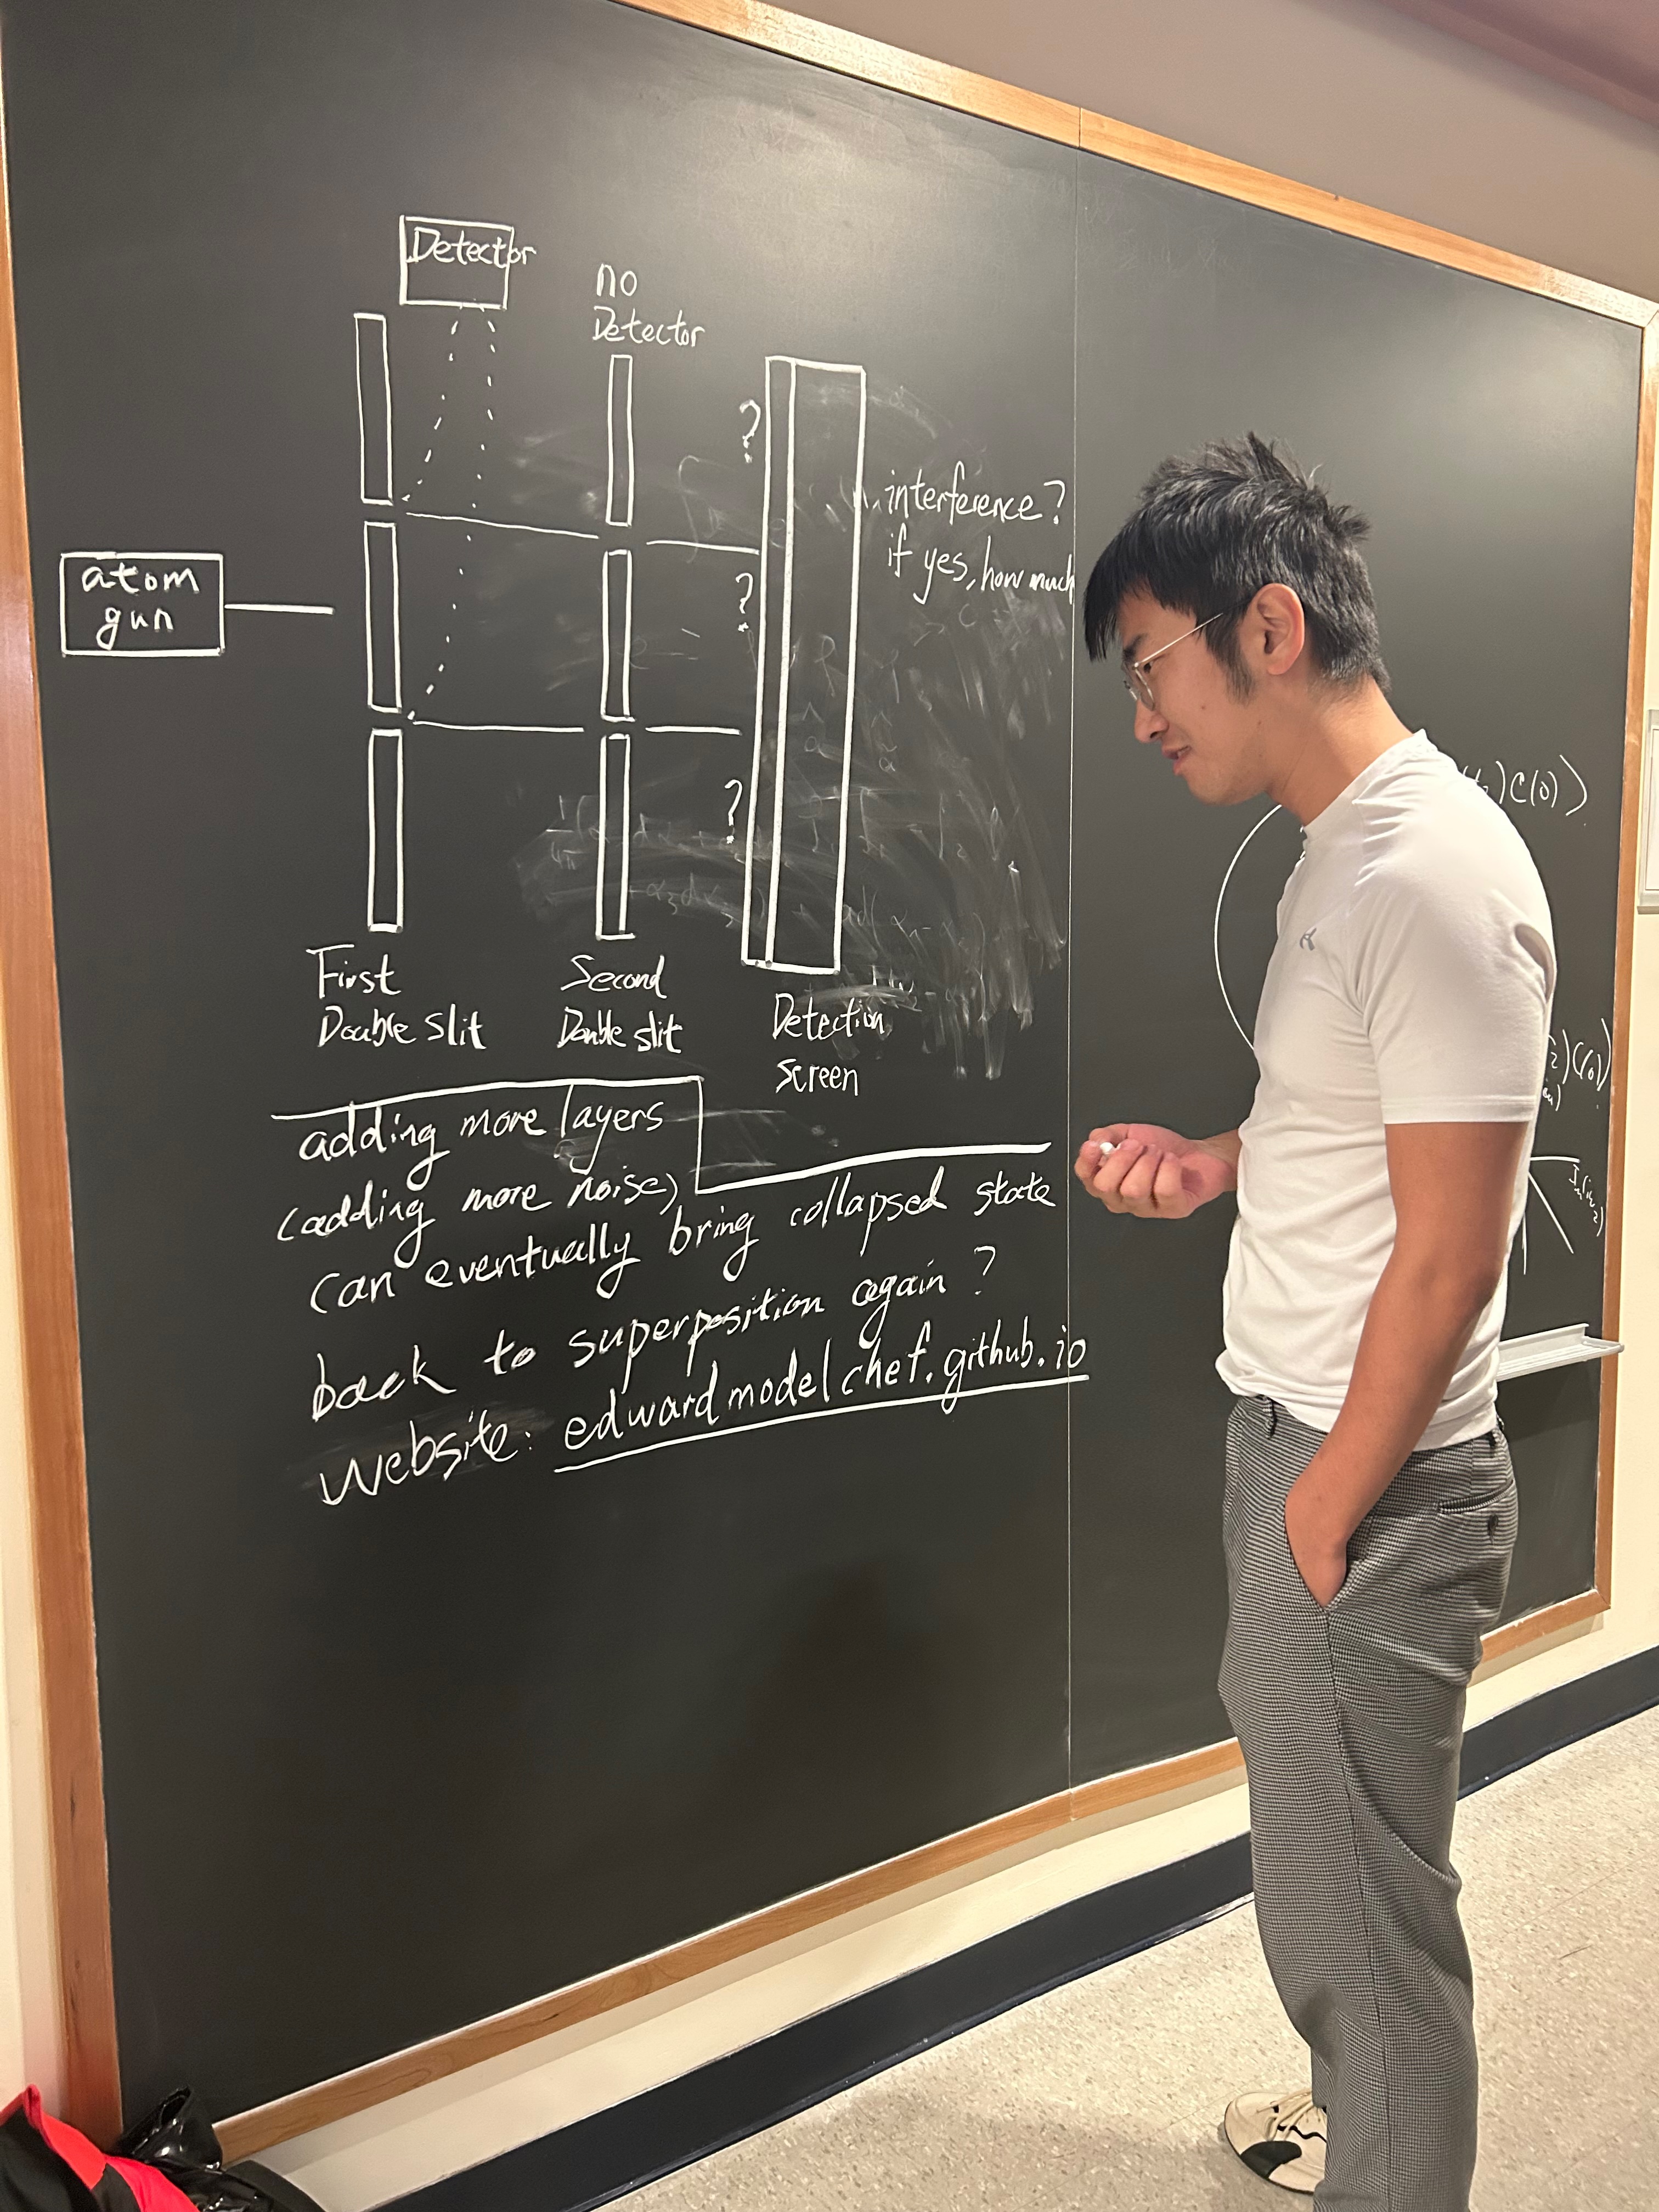 Detector
no
Detector
?
interference?
if yes, how much
atom
gun
?
?
First
Double slit
Second
Double slit
Detection
screen
adding more layers
(adding more noise)
can eventually bring collapsed state
back to superposition again?
website: edwardmodelchef.github.io
)C(0)⟩